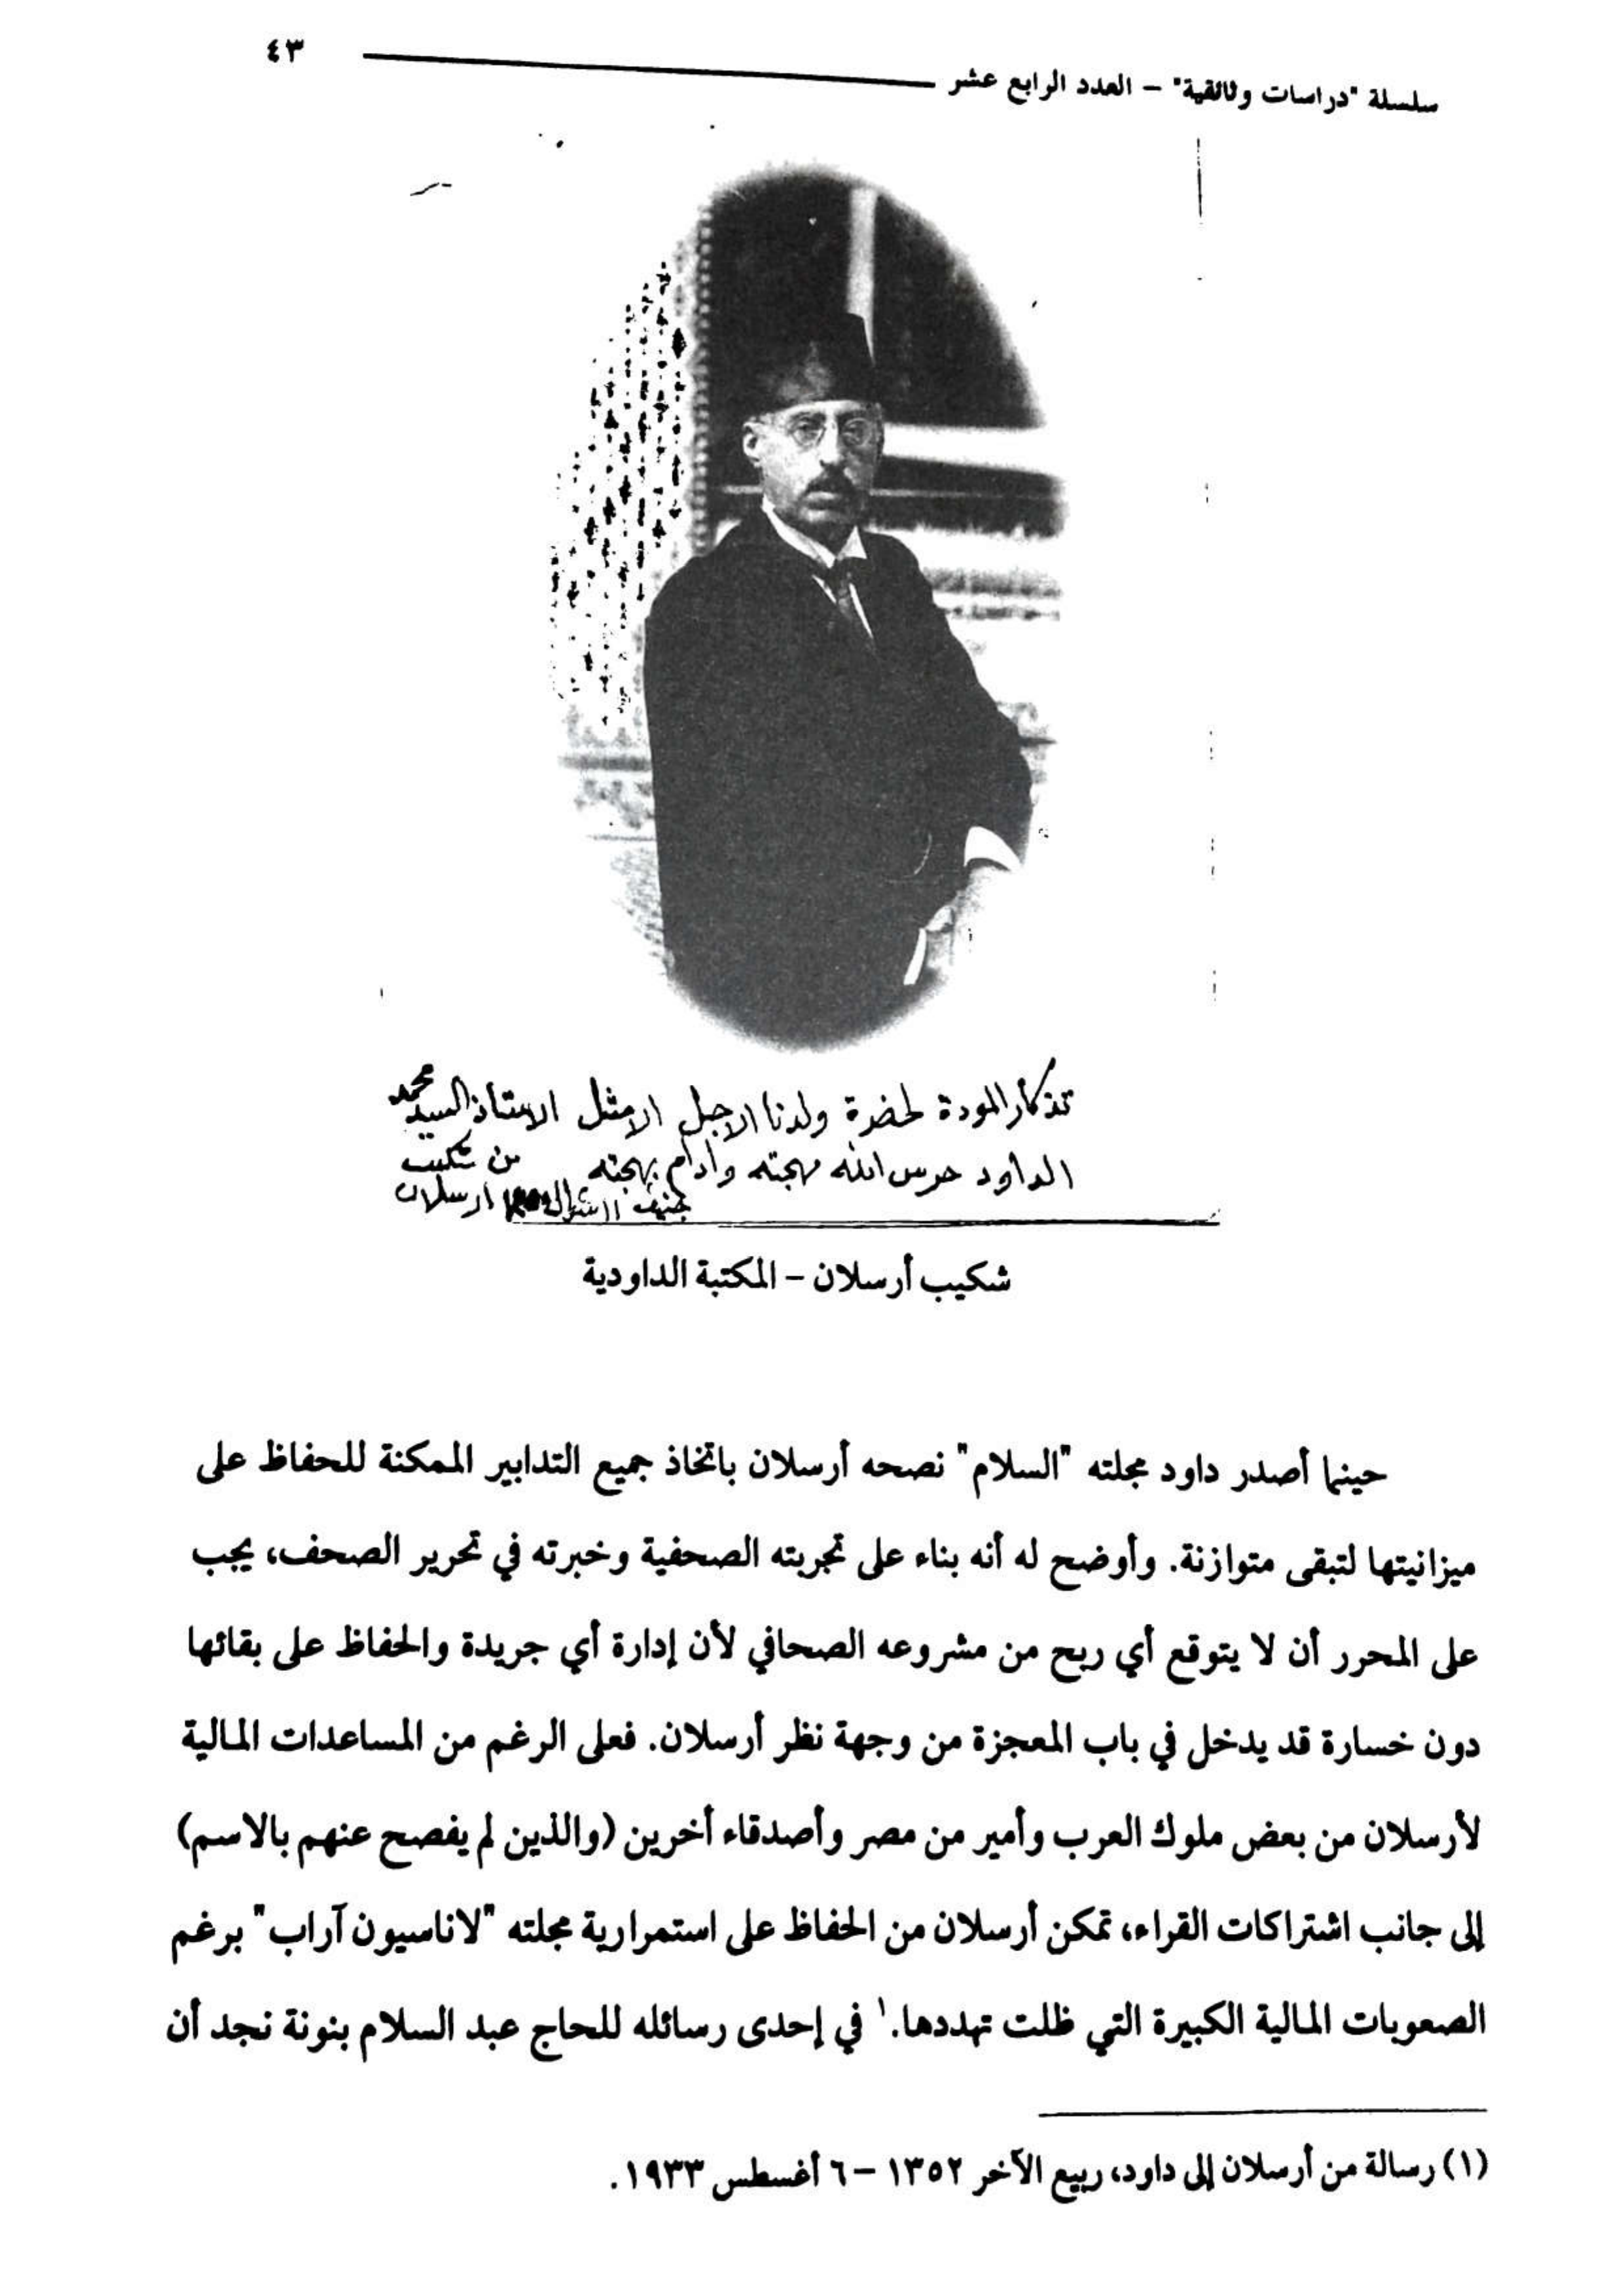 سلسلة "دراسات وثائقية" – العدد الرابع عشر ٤٣
تذكار المودة لحضرة ولدنا الاجل الامثل الاستاذ السيد محمد
الداود حرس الله مهجته وادام بهجته من شكيب
جنيف ١١ شوال ارسلان
شكيب أرسلان – المكتبة الداودية
حينما أصدر داود مجلته "السلام" نصحه أرسلان باتخاذ جميع التدابير الممكنة للحفاظ على
ميزانيتها لتبقى متوازنة. وأوضح له أنه بناء على تجربته الصحفية وخبرته في تحرير الصحف، يجب
على المحرر أن لا يتوقع أي ربح من مشروعه الصحافي لأن إدارة أي جريدة والحفاظ على بقائها
دون خسارة قد يدخل في باب المعجزة من وجهة نظر أرسلان. فعلى الرغم من المساعدات المالية
لأرسلان من بعض ملوك العرب وأمير من مصر وأصدقاء أخرين (والذين لم يفصح عنهم بالاسم)
إلى جانب اشتراكات القراء، تمكن أرسلان من الحفاظ على استمرارية مجلته "لاناسيون آراب" برغم
الصعوبات المالية الكبيرة التي ظلت تهددها.١ في إحدى رسائله للحاج عبد السلام بنونة نجد أن
(١) رسالة من أرسلان إلى داود، ربيع الآخر ١٣٥٢ – ٦ أغسطس ١٩٣٣.